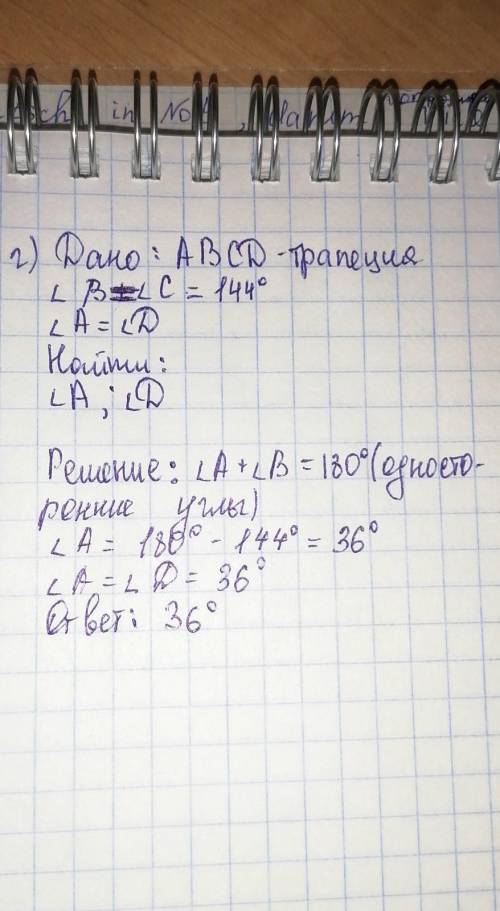 in No
г) Дано: ABCD - трапеция
∠B = ∠C = 144°
∠A = ∠D
Найти:
∠A ; ∠D
Решение: ∠A + ∠B = 180° (односто-
ронние углы)
∠A = 180° - 144° = 36°
∠A = ∠D = 36°
Ответ: 36°